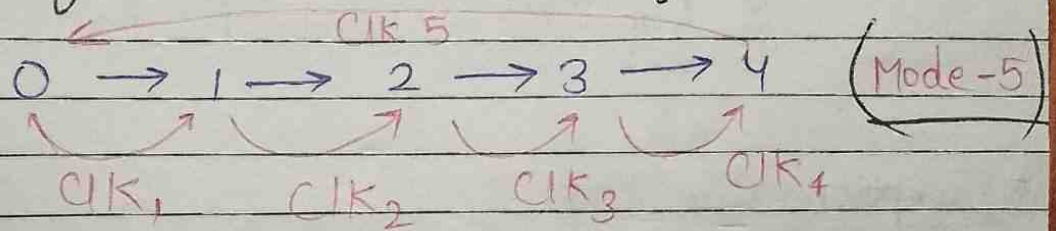 Clk 5
0 → 1 → 2 → 3 → 4 (Mode-5)
Clk₁ Clk₂ Clk₃ Clk₄